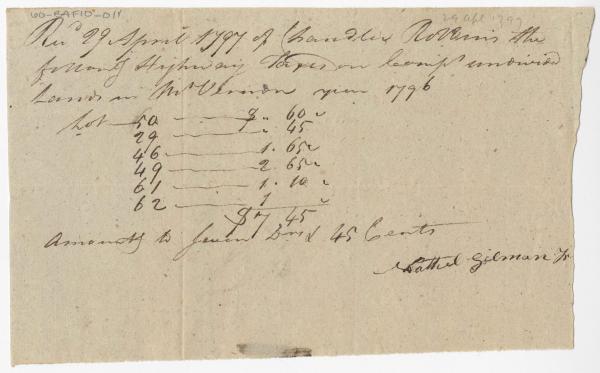 60-RAFID-011
29 Apl 1797
Recd 29 April 1797 of Chandler Robbins the
followg Highway Taxes on Compy undivided
Lands in Mt Vernon year 1796
Lot 50 — $ „ 60
29 — „ 45
46 — 1. 65
49 — 2. 65
61 — 1. 10
62 — 1
$7 45
Amounts to Seven Drs & 45 Cents
Nathel Gilman Jr